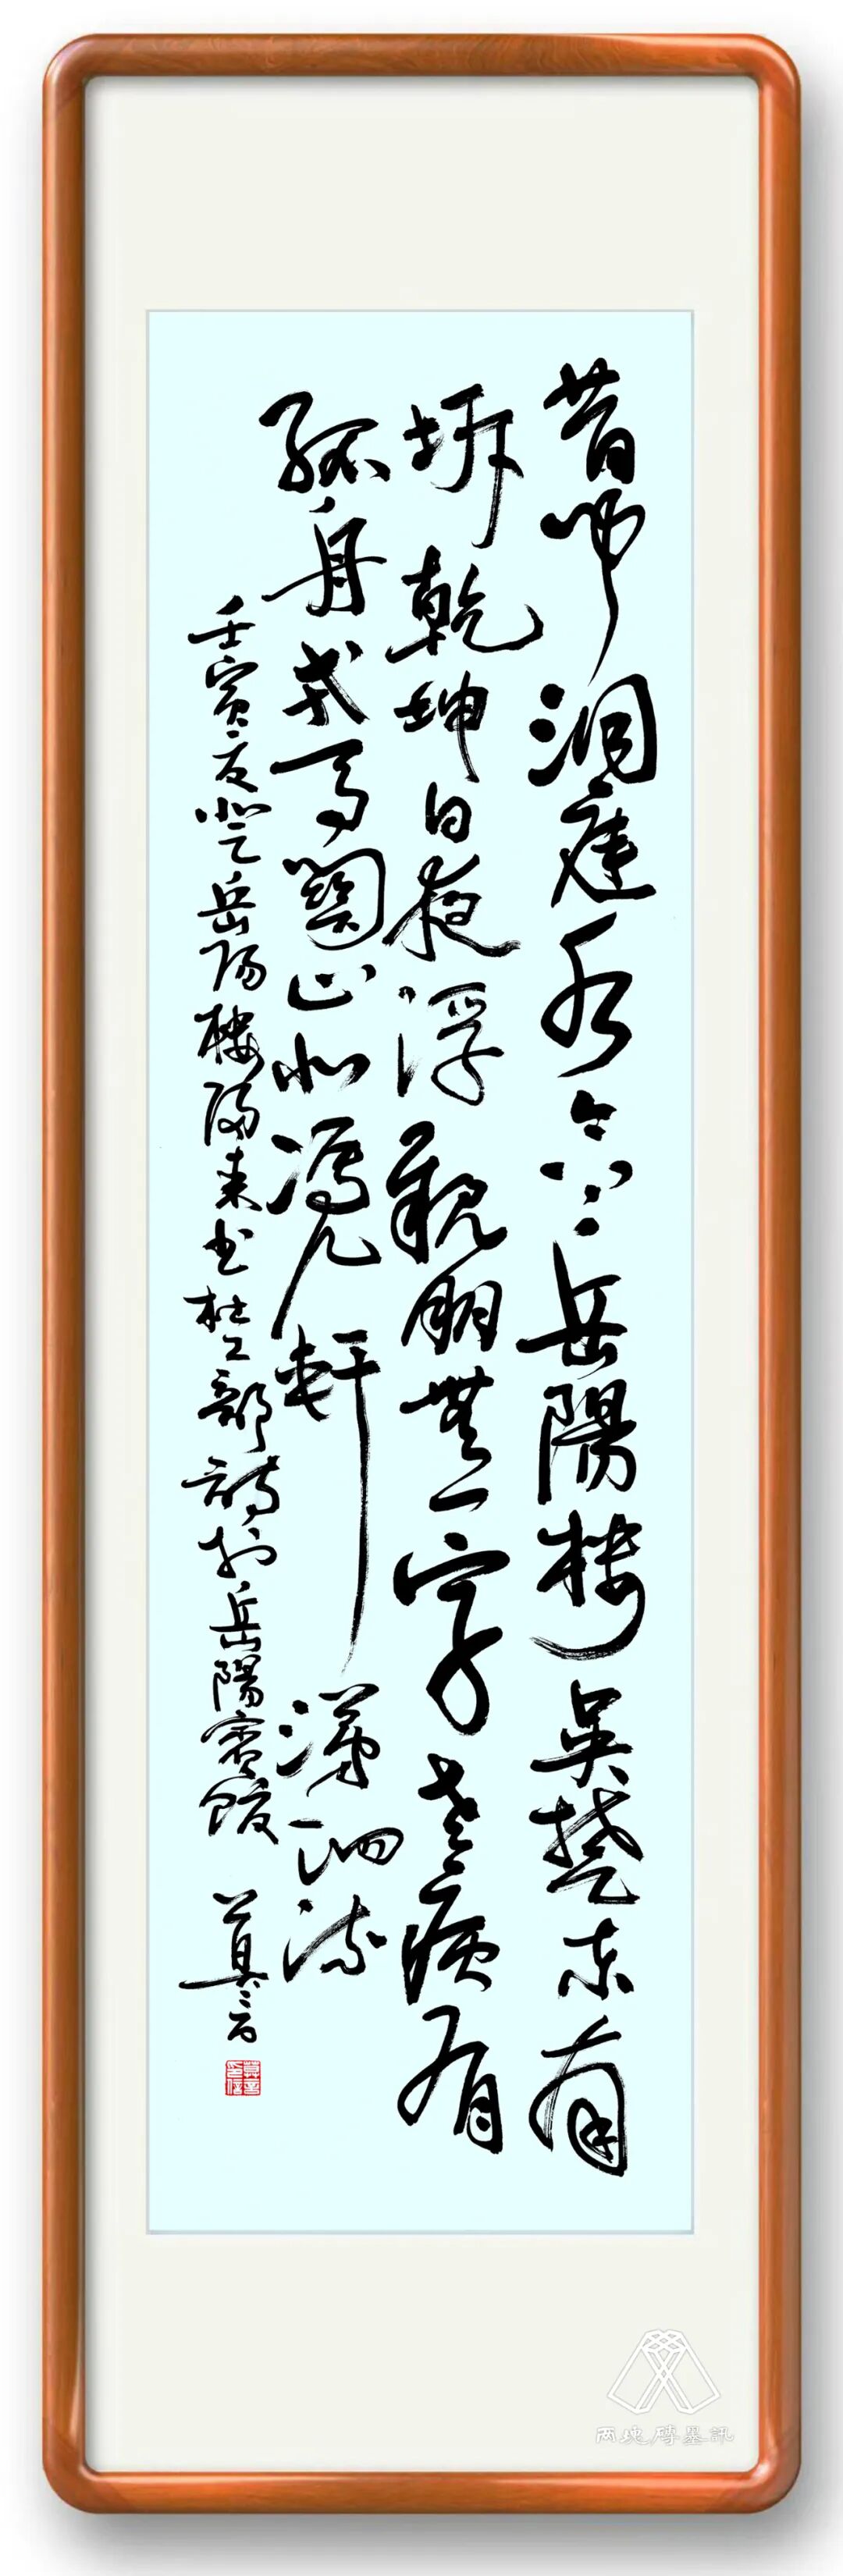 昔聞洞庭水今上岳陽樓吳楚東南
坼乾坤日夜浮親朋無一字老病有
孤舟戎馬關山北凴軒涕泗流
壬寅夏登岳陽樓歸來书杜工部詩於岳陽賓館 莫言
两塊磚墨訊